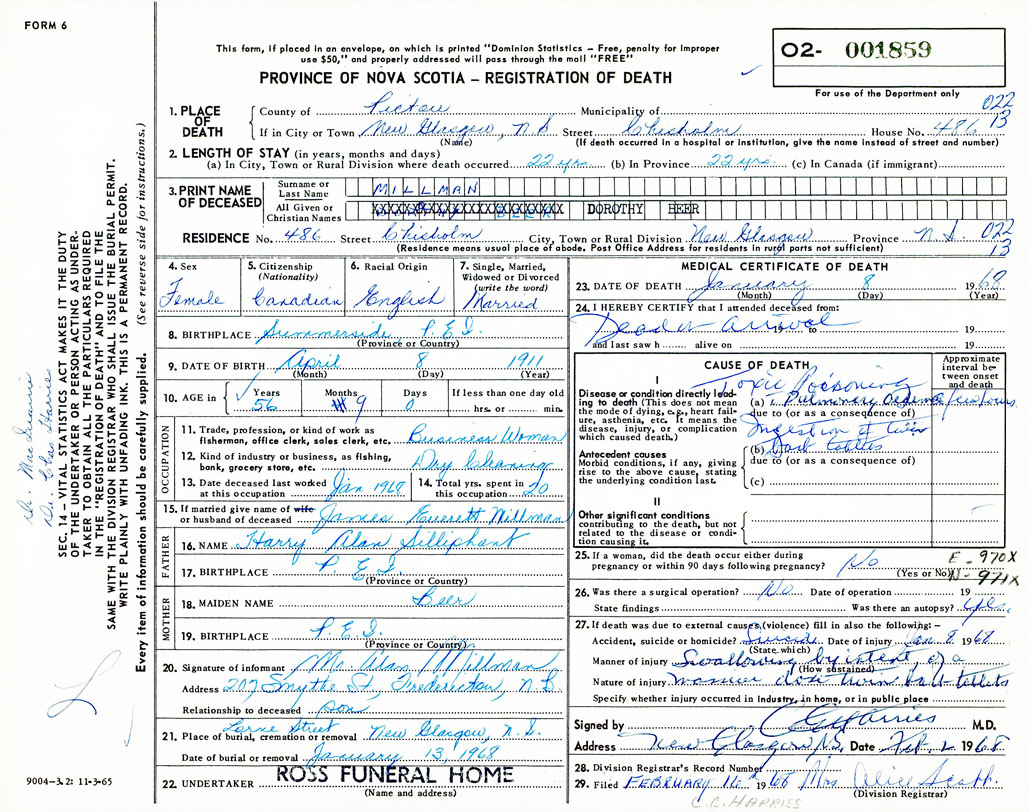 FORM 6
This form, if placed in an envelope, on which is printed "Dominion Statistics – Free, penalty for improper
use $50," and properly addressed will pass through the mail "FREE"
O2- 001859
PROVINCE OF NOVA SCOTIA – REGISTRATION OF DEATH
For use of the Department only
1. PLACE OF DEATH
County of Pictou Municipality of 022
If in City or Town New Glasgow, N.S. Street Chisholm House No. 486 13
(Name) (If death occurred in a hospital or institution, give the name instead of street and number)
2. LENGTH OF STAY (in years, months and days)
(a) In City, Town or Rural Division where death occurred 22 yrs (b) In Province 22 yrs (c) In Canada (if immigrant)
3. PRINT NAME OF DECEASED
Surname or Last Name MILLMAN
All Given or Christian Names DOROTHY BEER
RESIDENCE No. 486 Street Chisholm City, Town or Rural Division New Glasgow Province N.S. 022
(Residence means usual place of abode. Post Office Address for residents in rural parts not sufficient) 13
4. Sex Female
5. Citizenship (Nationality) Canadian
6. Racial Origin English
7. Single, Married, Widowed or Divorced (write the word) Married
8. BIRTHPLACE Summerside P.E.I.
(Province or Country)
9. DATE OF BIRTH April 8 1911
(Month) (Day) (Year)
10. AGE in Years 56 Months 9 Days 0 If less than one day old hrs. or min.
OCCUPATION
11. Trade, profession, or kind of work as fisherman, office clerk, sales clerk, etc. Business Woman
12. Kind of industry or business, as fishing, bank, grocery store, etc. Dry Cleaning
13. Date deceased last worked at this occupation Jan 1968
14. Total yrs. spent in this occupation 20
15. If married give name of wife or husband of deceased James Everett Millman
FATHER
16. NAME Harry Alan Silliphant
17. BIRTHPLACE P.E.I.
(Province or Country)
MOTHER
18. MAIDEN NAME Beer
19. BIRTHPLACE P.E.I.
(Province or Country)
20. Signature of informant Mr. Alan Millman
Address 207 Smythe St. Fredericton, N.B.
Relationship to deceased son
21. Place of burial, cremation or removal Lorne Street New Glasgow, N.S.
Date of burial or removal January 13, 1968
22. UNDERTAKER ROSS FUNERAL HOME
(Name and address)
MEDICAL CERTIFICATE OF DEATH
23. DATE OF DEATH January 8 1968
(Month) (Day) (Year)
24. I HEREBY CERTIFY that I attended deceased from:
Dead on arrival 19 to 19
and last saw h alive on 19
CAUSE OF DEATH
Approximate interval between onset and death
I
Toxic Poisoning
Disease or condition directly leading to death (This does not mean the mode of dying, e.g., heart failure, asthenia, etc. It means the disease, injury, or complication which caused death.)
(a) Pulmonary Oedema
due to (or as a consequence of)
Ingestion of
Antecedent causes
Morbid conditions, if any, giving rise to the above cause, stating the underlying condition last.
(b)
due to (or as a consequence of)
(c)
II
Other significant conditions
contributing to the death, but not related to the disease or condition causing it.
25. If a woman, did the death occur either during pregnancy or within 90 days following pregnancy? No
(Yes or No)
E - 970X
N - 971X
26. Was there a surgical operation? No Date of operation 19
State findings Was there an autopsy? yes
27. If death was due to external causes (violence) fill in also the following: –
Accident, suicide or homicide? Suicide Date of injury Jan 8 1968
(State which)
Manner of injury Swallowing by intent of a
(How sustained)
Nature of injury
Specify whether injury occurred in industry, in home, or in public place
Signed by C E Harries M.D.
Address New Glasgow N.S. Date Feb. 2 1968
28. Division Registrar's Record Number
29. Filed FEBRUARY 1968 Mrs Alice Scott
(Division Registrar)
C.E. HARRIES
SEC. 14 – VITAL STATISTICS ACT MAKES IT THE DUTY
OF THE UNDERTAKER OR PERSON ACTING AS UNDER-
TAKER TO OBTAIN ALL THE PARTICULARS REQUIRED
IN THE "REGISTRATION OF DEATH" AND TO FILE THE
SAME WITH THE DIVISION REGISTRAR WHO SHALL ISSUE THE BURIAL PERMIT.
WRITE PLAINLY WITH UNFADING INK. THIS IS A PERMANENT RECORD.
Every item of information should be carefully supplied. (See reverse side for instructions.)
Dr. Chas Harries
9004-3.2: 11-3-65